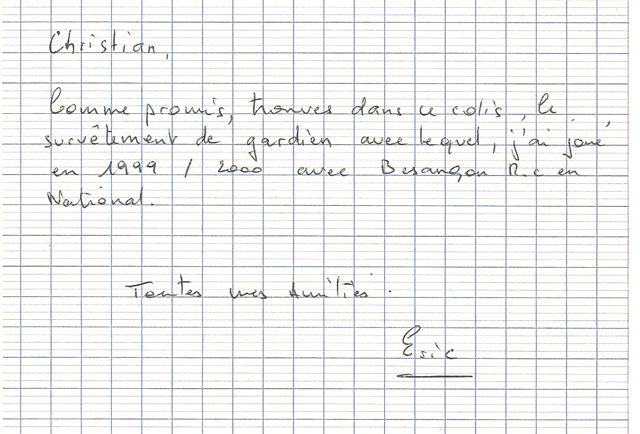 Christian,
Comme promis, trouves dans ce colis, le
survêtement de gardien avec lequel, j'ai joué
en 1999 / 2000 avec Besançon R.c en
National.
Toutes mes Amitiés.
Eric